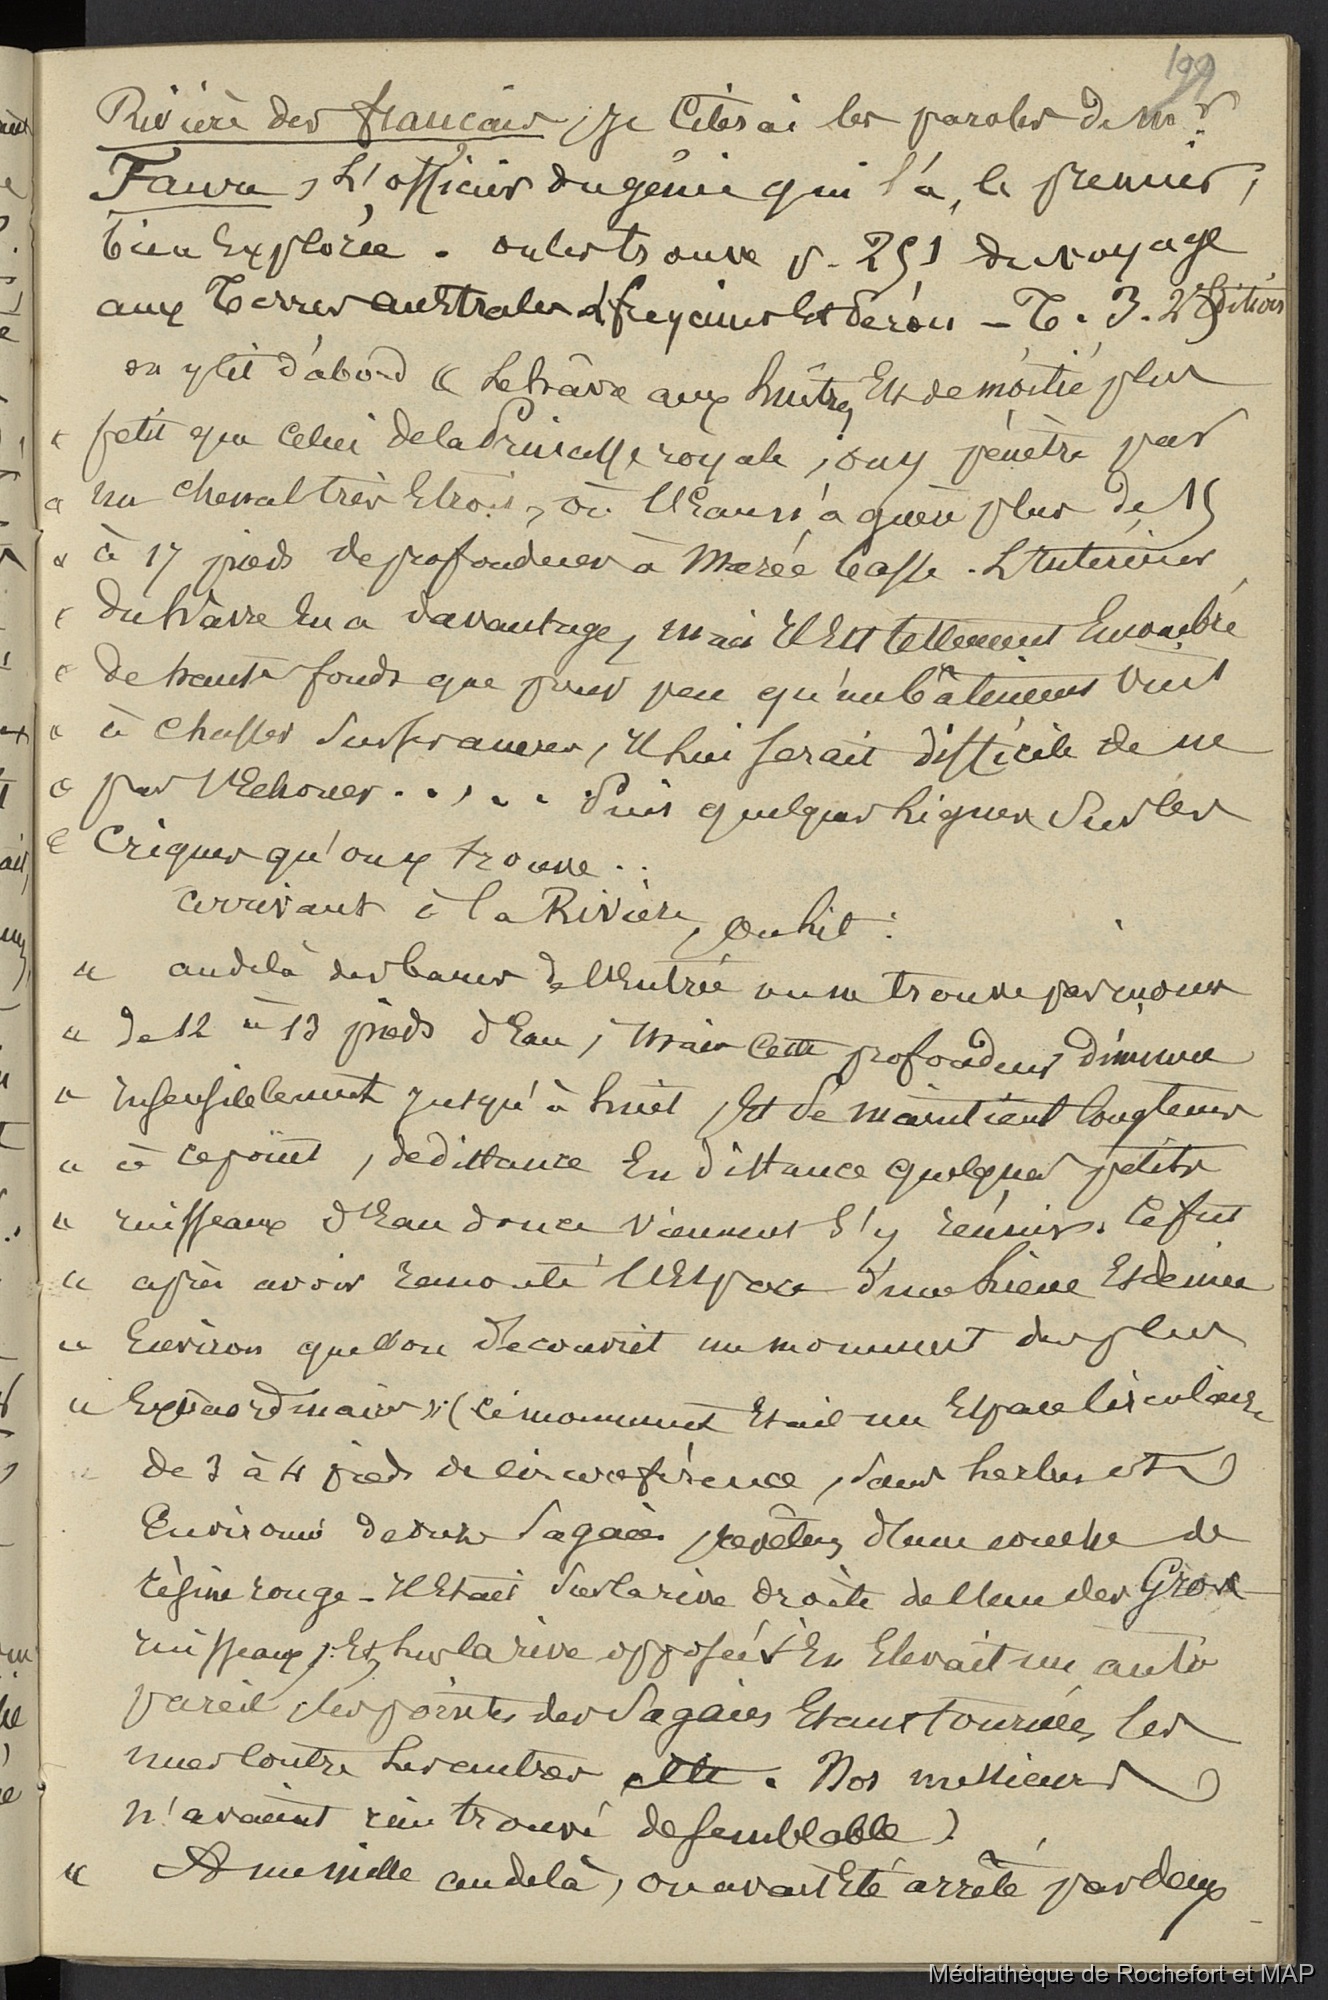 199
Rivière des français, je Citerai les paroles de Mr.
Faure, L'officier du génie qui l'a, le premier,
bien Explorée. on les trouve p. 251 du voyage
aux Terres australes d freycinet Et Péron - T. 3. 2e Edition
on y lit d'abord « Le hâvre aux huîtres Est de moitié plus
« petit que Celui de la Princesse royale, on y pénètre par
« un chenal très Etroit, où l'Eau n'a guère plus de 15
« à 17 pieds de profondeur à Marée basse. L'Intérieur
« du hâvre En a davantage, mais Il Est tellement Encombré
« de hauts fonds que pour peu qu'un bâtiment vint
« à chasser sur ses ancres, Il lui serait difficile de ne
« pas s'Echouer . . , . . . Puis quelques lignes sur les
« Criques qu'on y trouve . .
arrivant à la Rivière, on lit :
« au delà des bancs de l'Entrée on ne trouve pas moins
« de 12 à 13 pieds d'Eau, mais Cette profondeur diminue
« insensiblement jusqu'à huit, Et se maintient longtems
« à ce point, de distance En distance quelques petits
« ruisseaux d'Eau douce viennent s'y réunir. Ce fut
« après avoir remonté l'Espace d'une lieue Et demie
« Environ que l'on découvrit un monument des plus
« Extraordinaires : (ce monument Etait un Espace circulaire
de 3 à 4 pieds de circonférence, sans herbes et
Environné de sagaies, revêtues d'une couche de
résine rouge - Il Etait sur la rive droite de l'un des Gros
ruisseaux ; Et sur la rive opposée s'En Elevait un autre
pareil, les pointes des sagaies Etant tournées les
unes Contre les autres ettc. Nos messieurs
n'avaient rien trouvé de semblable).
« A un mille au delà, on avait Eté arrêté par deux
Médiathèque de Rochefort et MAP